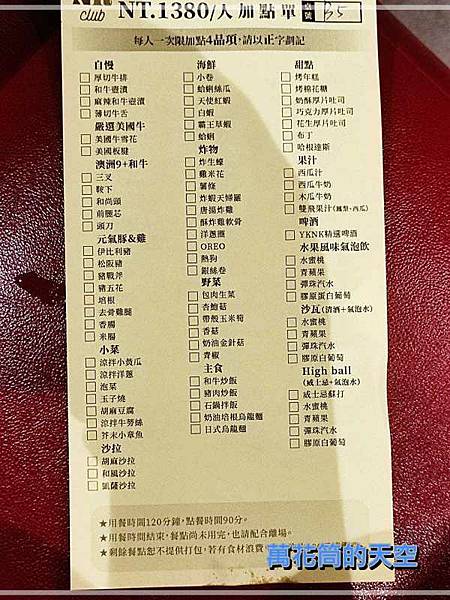 NR club
NT.1380/人加點單
B5
每人一次限加點4品項,請以正字劃記
自慢
厚切牛排
和牛壺漬
麻辣和牛壺漬
薄切牛舌
嚴選美國牛
美國牛雪花
美國板腱
澳洲9+和牛
三叉
鞍下
和尚頭
前腿芯
頭刀
元氣豚&雞
伊比利豬
松阪豬
豬戰斧
豬五花
培根
去骨雞腿
香腸
米腸
小菜
涼拌小黃瓜
涼拌洋蔥
泡菜
玉子燒
胡麻豆腐
涼拌牛蒡絲
芥末小章魚
沙拉
胡麻沙拉
和風沙拉
凱薩沙拉
海鮮
小卷
蛤蜊絲瓜
天使紅蝦
白蝦
霸王草蝦
蛤蜊
炸物
炸生蠔
雞米花
薯條
炸蝦天婦羅
唐揚炸雞
酥炸雞軟骨
洋蔥圈
OREO
熱狗
銀絲卷
野菜
包肉生菜
杏鮑菇
帶殼玉米筍
香菇
奶油金針菇
青椒
主食
和牛炒飯
豬肉炒飯
石鍋拌飯
奶油培根烏龍麵
日式烏龍麵
甜點
烤年糕
烤棉花糖
奶酥厚片吐司
巧克力厚片吐司
花生厚片吐司
布丁
哈根達斯
果汁
西瓜汁
西瓜牛奶
木瓜牛奶
雙飛果汁(鳳梨、西瓜)
啤酒
YKNK精選啤酒
水果風味氣泡飲
水蜜桃
青蘋果
彈珠汽水
膠原蛋白葡萄
沙瓦(清酒+氣泡水)
水蜜桃
青蘋果
彈珠汽水
膠原白葡萄
High ball
(威士忌+氣泡水)
威士忌蘇打
水蜜桃
青蘋果
彈珠汽水
膠原白葡萄
★用餐時間120分鐘,點餐時間90分。
★用餐時間結束,餐點尚未用完,也請配合離場。
★剩餘餐點恕不提供打包,若有食材浪費
萬花筒的天空